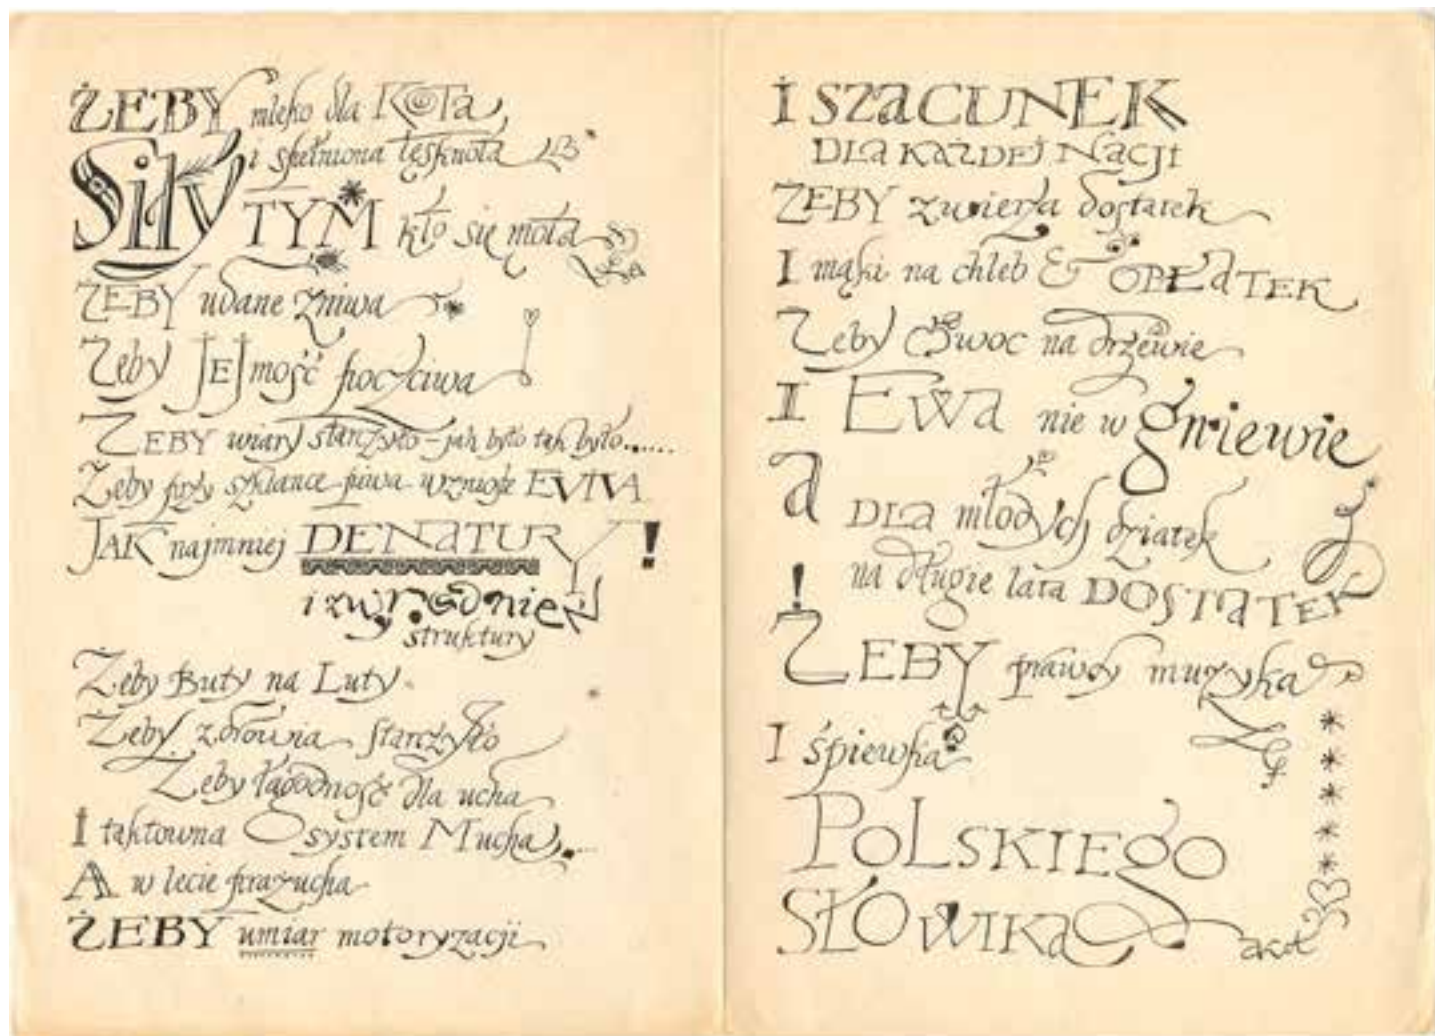 ŻEBY mleko dla KOTA,
i spełniona tęsknota
Siły TYM kto się mota
ŻEBY udane żniwa
Żeby JEJmość poczciwa
ŻEBY wiary starczyło – jak było tak było......
Żeby przy szklance piwa wzniosłe EVIVA
JAK najmniej DENATURY!
i zwyrodnień
struktury
Żeby Buty na Luty
Żeby zdrowia starczyło
Żeby łagodność dla ucha
I taktowna Osystem Mucha,....
A w lecie prażucha
ŻEBY umiar motoryzacji
I SZACUNEK
DLA KAŻDEJ NACJI
ŻEBY zwierza dostatek
I mąki na chleb & OPŁATEK
Żeby Owoc na drzewie
I EWA nie w gniewie
A DLA młodych dziatek
na długie lata DOSTATEK!
ŻEBY prawdy muzyka
I śpiewka
POLSKIEGO
SŁOWIKA
akot